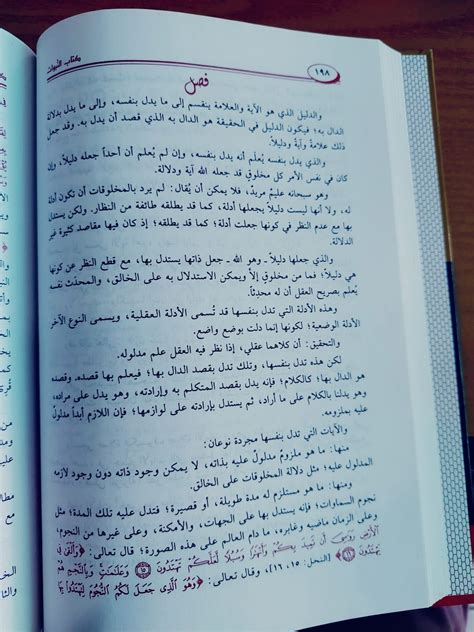 كتاب النبوات
١٩٨
فصل
والدليل الذي هو الآية والعلامة ينقسم إلى ما يدل بنفسه، وإلى ما يدل بدلالة
الدال به؛ فيكون الدليل في الحقيقة هو الدال به الذي قصد أن يدل به. وقد جعل
ذلك علامةً وآيةً ودليلاً.
والذي يدل بنفسه يُعلَم أنه يدل بنفسه، وإن لم يُعلم أن أحداً جعله دليلاً، وإن
كان في نفس الأمر كل مخلوق قد جعله الله آية ودلالة.
وهو سبحانه عليم مريد، فلا يمكن أن يُقال: لم يرد بالمخلوقات أن تكون أدلة
له، ولا أنها ليست دليلاً يجعلها أدلة؛ كما قد يطلقه طائفة من النظار. ولكن يستدل
بها مع عدم النظر في كونها جعلت أدلة؛ كما قد يطلقه؛ إذ كان فيها مقاصد كثيرة غير
الدلالة.
والذي جعلها دليلاً ـ وهو الله ـ جعل ذاتها يستدل بها، مع قطع النظر عن كونها
هي دليلاً؛ فما من مخلوق إلاّ ويمكن الاستدلال به على الخالق، والمحدَث نفسه
يُعلم بصريح العقل أن له محدِثاً.
وهذه الأدلة التي تدل بنفسها قد تُسمى الأدلة العقلية، ويسمى النوع الآخر
الأدلة الوضعية؛ لكونها إنما دلت بوضع واضع.
والتحقيق: أن كلاهما عقلي، إذا نظر فيه العقل علم مدلوله.
لكن هذه تدل بنفسها، وتلك تدل بقصد الدال بها؛ فيعلم بها قصده. وقصده
هو الدال بها؛ كالكلام؛ فإنه يدل بقصد المتكلم به وإرادته، وهو يدل على مراده،
وهو يدلنا بالكلام على ما أراد، ثم يستدل بإرادته على لوازمها؛ فإن اللازم أبداً مدلولٌ
عليه بملزومه.
والآيات التي تدل بنفسها مجردة نوعان:
منها: ما هو ملزوم مدلول عليه بذاته، لا يمكن وجود ذاته دون وجود لازمه
المدلول عليه؛ مثل دلالة المخلوقات على الخالق.
ومنها: ما هو مستلزم له مدة طويلة، أو قصيرة؛ فتدل عليه تلك المدة؛ مثل
نجوم السماوات؛ فإنه يستدل بها على الجهات، والأمكنة، وعلى غيرها من النجوم،
وعلى الزمان ماضيه وغابره، ما دام العالم على هذه الصورة؛ قال تعالى: ﴿وَأَلْقَىٰ فِي
الْأَرْضِ رَوَاسِيَ أَن تَمِيدَ بِكُمْ وَأَنْهَارًا وَسُبُلًا لَّعَلَّكُمْ تَهْتَدُونَ ١٥ وَعَلَامَاتٍ وَبِالنَّجْمِ هُمْ
يَهْتَدُونَ ١٦﴾ [النحل: ١٥، ١٦]، وقال تعالى: ﴿وَهُوَ الَّذِي جَعَلَ لَكُمُ النُّجُومَ لِتَهْتَدُوا بِهَا